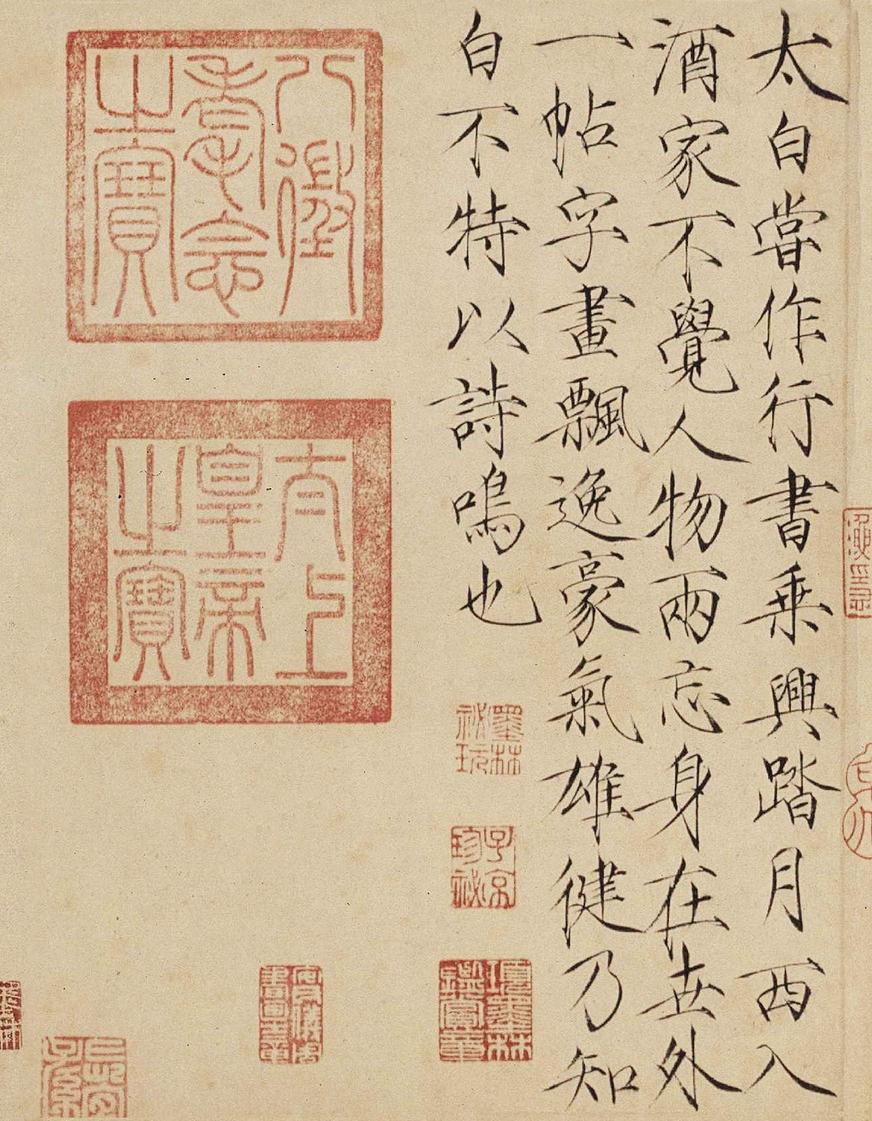 太白嘗作行書乗興踏月西入
酒家不覺人物兩忘身在世外
一帖字畫飄逸豪氣雄健乃知
白不特以詩鳴也
八徵耄念之寶
太上皇帝之寶
墨林祕玩
子京珍祕
項墨林鑑賞章
安儀周家珍藏